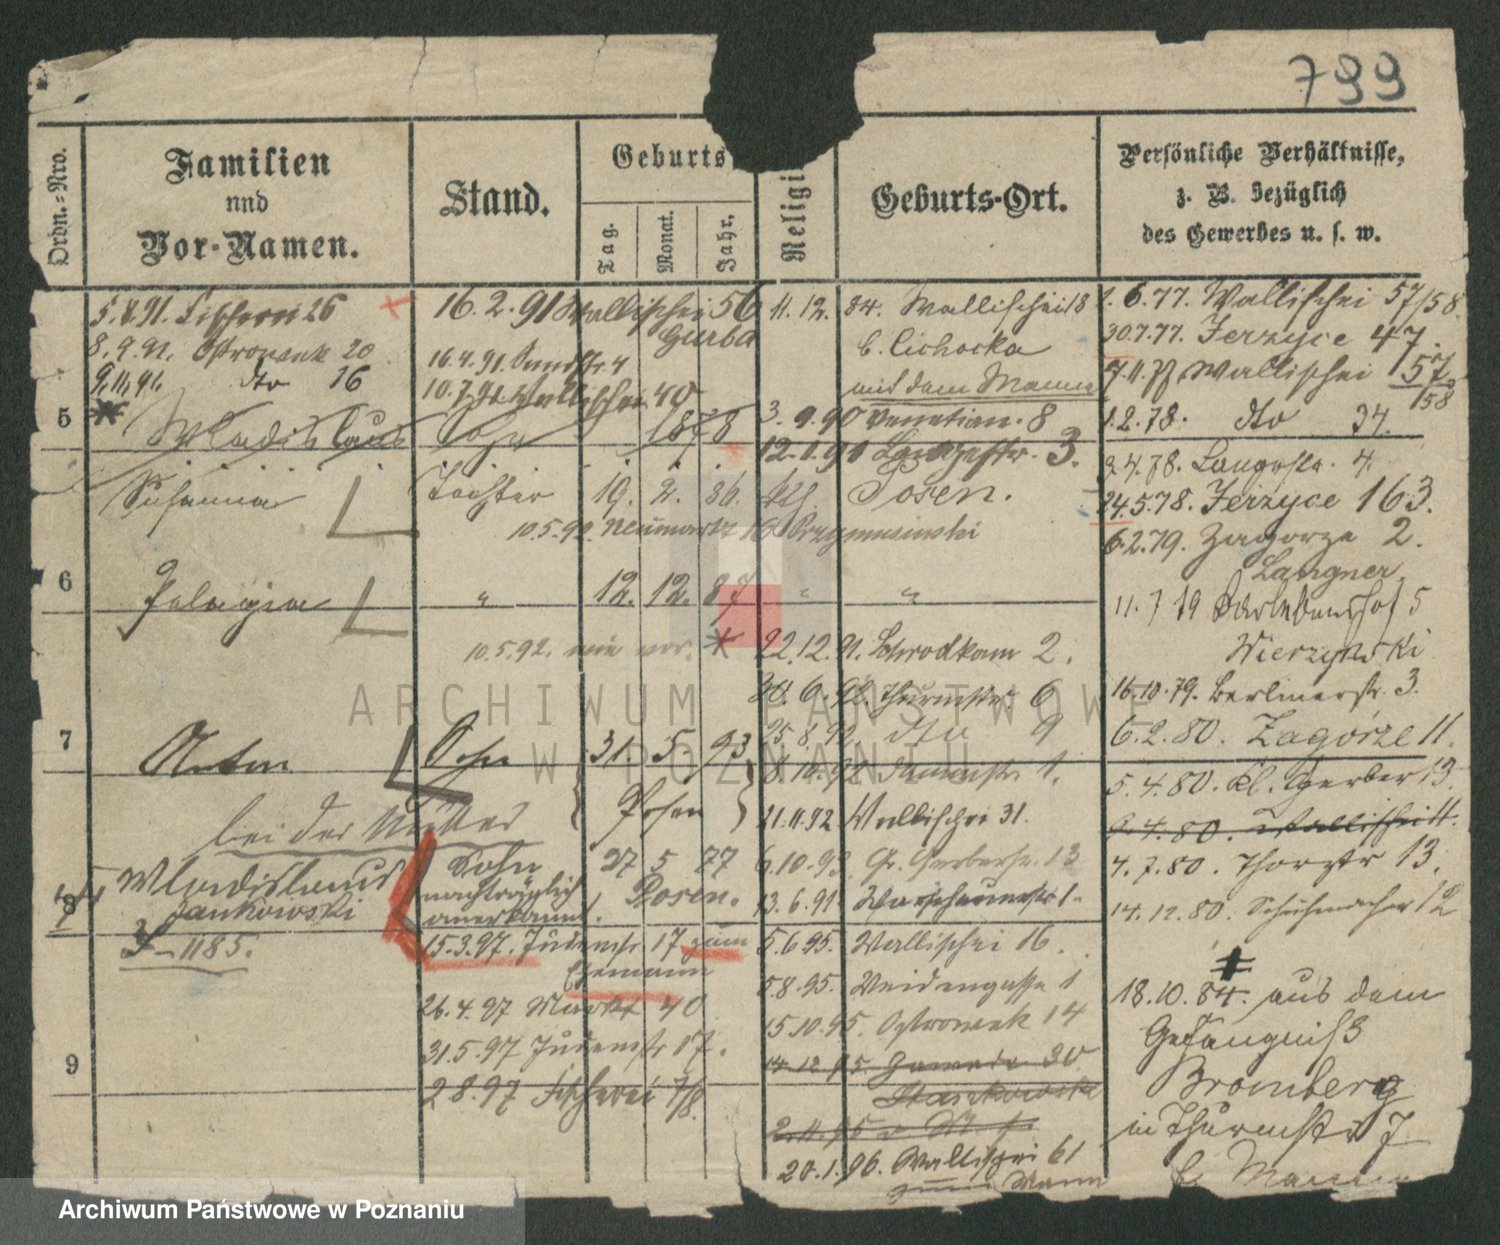 799
Ordn.-Nro.
Familien
und
Vor-Namen.
Stand.
Geburts
Tag.
Monat.
Jahr.
Religi
Geburts-Ort.
Persönliche Verhältnisse,
z. B. bezüglich
des Gewerbes u. s. w.
5.8.91. Fischerei 26
8.9.91. Ostrowek 20
9.11.91. dto 16
16.2.91 Wallischei 56
Gurba
16.4.91 4
10.7.91 Wallischei 40
11.12.84. Wallischei 18
b. Cichocka
mit dem Manne
3.9.90 Venetian. 8
12.1.91 Langestr. 3.
5
Wladislaus Sohn 1878
Susanna Tochter 19. 2. 86. kth. Posen.
10.5.92. Neumarkt 16 Przymusinski
6
Pelagia " 12. 12. 87 " "
10.5.92. wie vor.
7
Anton Sohn 31. 5. 93
Posen
bei der Mutter
8
Wladislaus
Jankowski
Sohn
nachträglich
anerkannt.
27 5 77
Posen.
J-1185.
15.3.97. Judenstr. 17 zum
Ehemann
26.4.97 Markt 40
31.5.97 Judenstr. 17.
2.8.97 Fischerei 7/8.
9
22.12.91. Schrodkam 2.
30.6.92. Thurmstr. 6
25.8.92. dto 9
8.10.92 Dammstr. 1.
21.11.92 Wallischei 31.
6.10.93. Gr. Gerberstr. 13
13.6.91 Warschauerstr. 1.
5.6.95. Wallischei 16.
5.8.95. Weidengasse 1
15.10.95. Ostrowek 14
14.12.95. 30
2.11.95
20.1.96. Wallischei 61
zum Mann
1.6.77. Wallischei 57/58.
30.7.77. Jerzyce 47.
7.11.77. Wallischei 157/158
1.2.78. dto 34.
9.4.78. Langestr. 4.
24.5.78. Jerzyce 163.
6.2.79. Zagorze 2.
Langner
11.7.79 5
Wierzynski
16.10.79. Berlinerstr. 3.
6.2.80. Zagórze 11.
5.4.80. Kl. Gerber 13.
9.4.80. Wallischei 11.
4.7.80. Thorstr 13.
14.12.80. Schuhmacher 12
18.10.84. aus dem
Gefängniß
Bromberg
in Thurmstr 7
b. Manne
ARCHIWUM PAŃSTWOWE
W POZNANIU
Archiwum Państwowe w Poznaniu